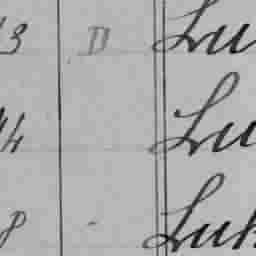 13 D Lu
14 Lu
8 - Luk